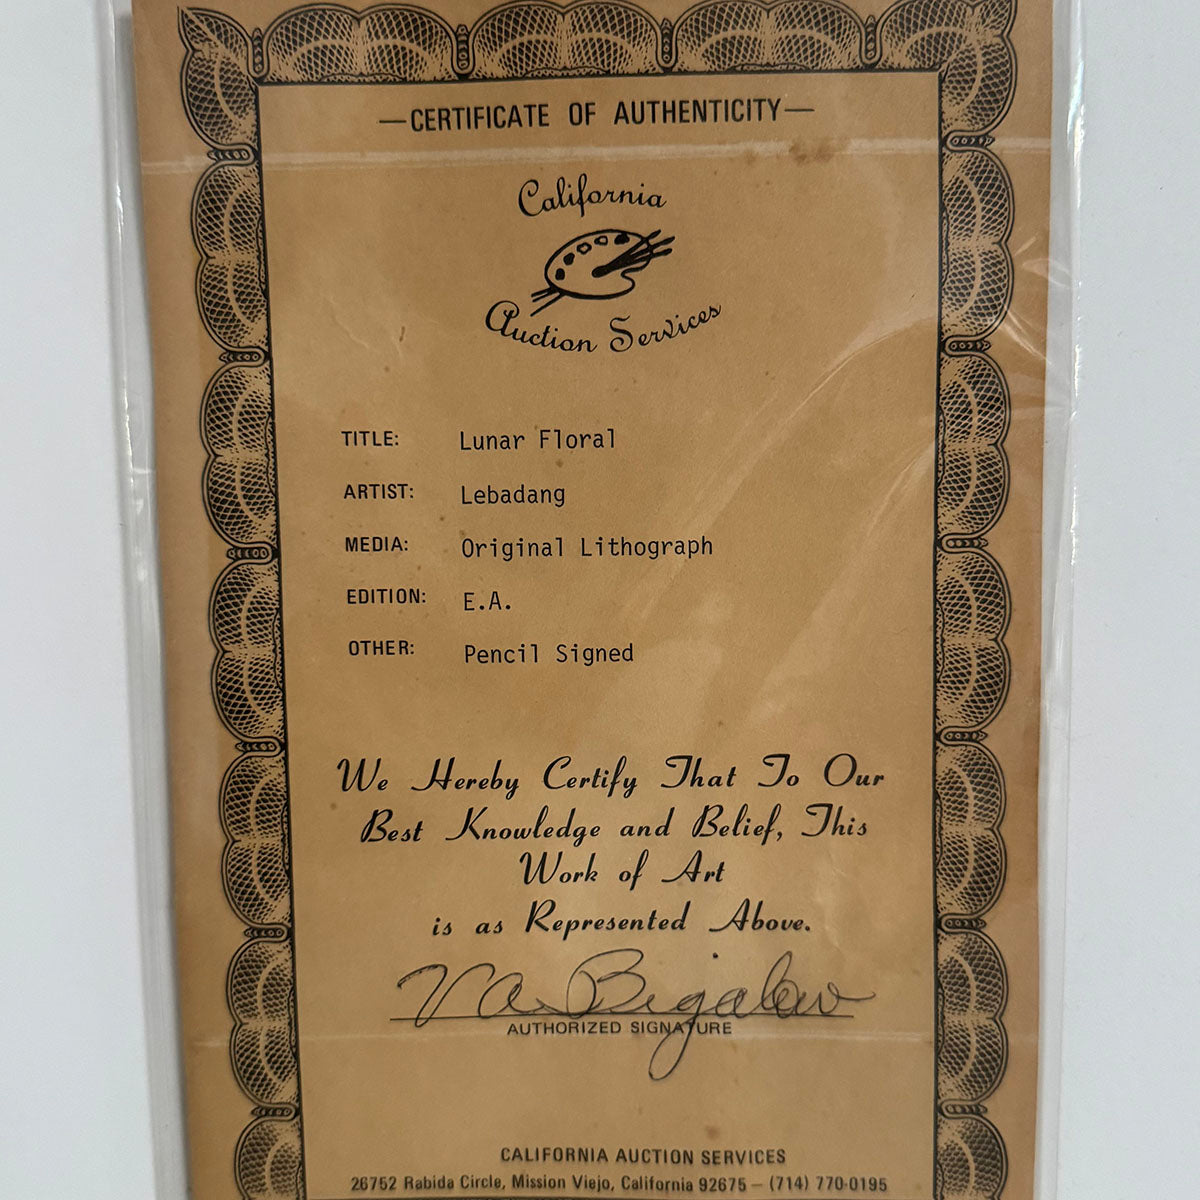 —CERTIFICATE OF AUTHENTICITY—
California
Auction Services
TITLE: Lunar Floral
ARTIST: Lebadang
MEDIA: Original Lithograph
EDITION: E.A.
OTHER: Pencil Signed
We Hereby Certify That To Our
Best Knowledge and Belief, This
Work of Art
is as Represented Above.
V A Bigalow
AUTHORIZED SIGNATURE
CALIFORNIA AUCTION SERVICES
26752 Rabida Circle, Mission Viejo, California 92675 — (714) 770-0195